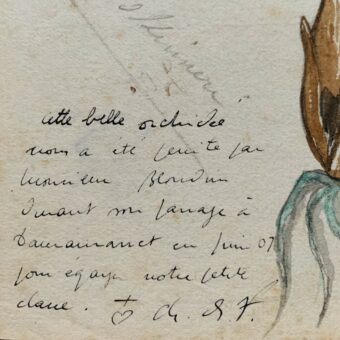 Skinneri
cette belle orchidée
nous a été peinte par
Monsieur Blondin
durant son passage à
en Juin 07
pour égayer notre petite
classe. ch. d. F.